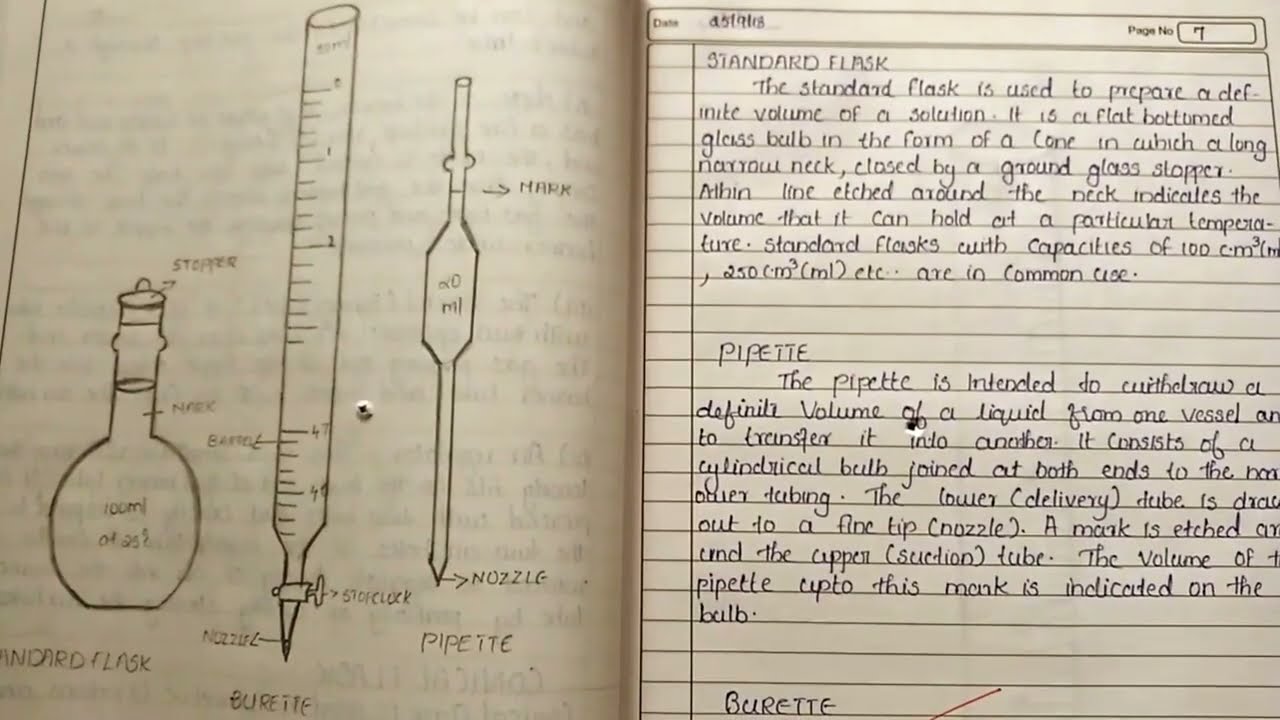 50ml
0
1
2
47
48
BARREL
STOPCLOCK
NOZZLE
BURETTE
STOPPER
MARK
100ml
at 25°C
STANDARD FLASK
MARK
20
ml
NOZZLE
PIPETTE
Date 25/9/18
Page No 7
STANDARD FLASK
The standard flask is used to prepare a def-
inite volume of a solution. It is a flat bottomed
glass bulb in the form of a Cone in which a long
narrow neck, closed by a ground glass stopper.
A thin line etched around the neck indicates the
volume that it can hold at a particular tempera-
ture. Standard flasks with capacities of 100 cm³(m
, 250 cm³(ml) etc.. are in Common use.
PIPETTE
The pipette is Intended to withdraw a
definite Volume of a liquid from one vessel an
to transfer it into another. It consists of a
cylindrical bulb joined at both ends to the
other tubing. The lower (delivery) tube is draw
out to a fine tip (nozzle). A mark is etched
und the upper (suction) tube. The Volume of
pipette upto this mark is indicated on the
bulb.
BURETTE